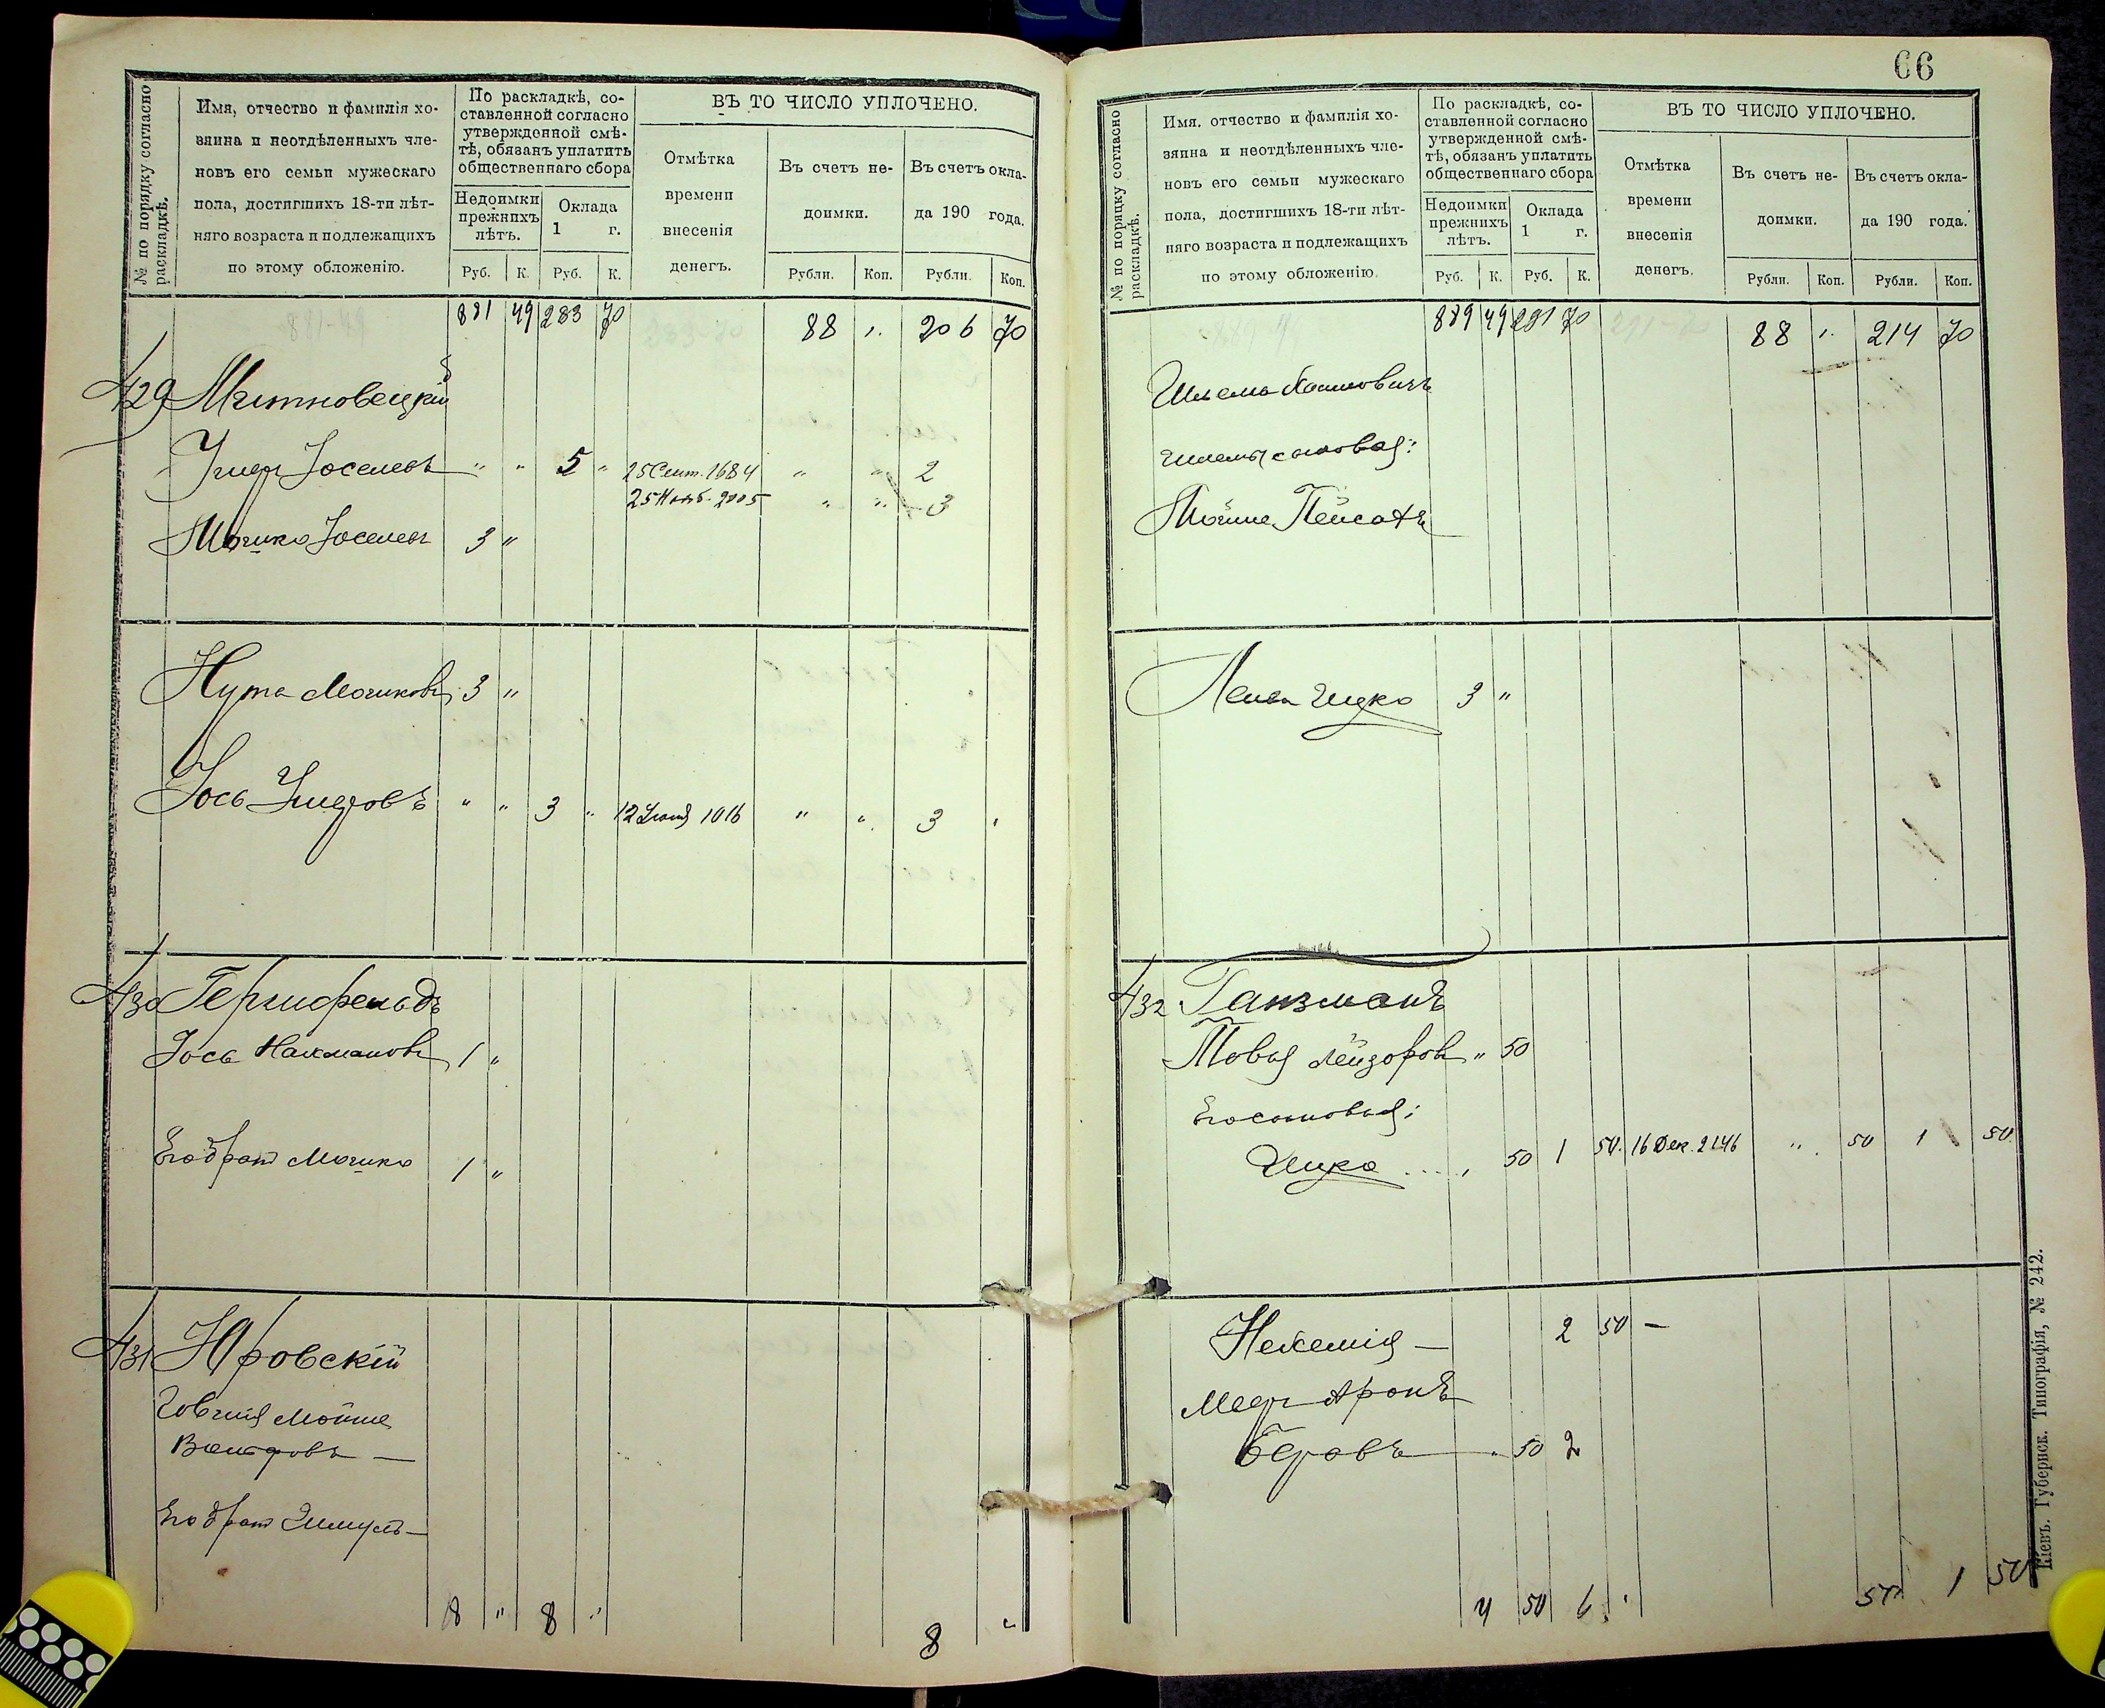 № по порядку согласно
раскладкѣ.
Имя, отчество и фамилія хо-
зяина и неотдѣленныхъ чле-
новъ его семьи мужескаго
пола, достигшихъ 18-ти лѣт-
няго возраста и подлежащихъ
по этому обложенію.
По раскладкѣ, со-
ставленной согласно
утвержденной смѣ-
тѣ, обязанъ уплатить
общественнаго сбора
Недоимки
прежнихъ
лѣтъ.
Оклада
1 г.
Руб. К. Руб. К.
ВЪ ТО ЧИСЛО УПЛОЧЕНО.
Отмѣтка
времени
внесенія
денегъ.
Въ счетъ не-
доимки.
Въ счетъ окла-
да 190 года.
Рубли. Коп. Рубли. Коп.
881 49 283 70 88 „ 206 70
429 Митновецкій
Іоселевъ „ „ 5 „ 25 Сент. 1684 „ „ 2
25 Нояб. 2005 „ „ 3
Мошко Іоселевъ 3 „
Нута Мошковъ 3 „
Іось „ „ 3 „ 12 1016 „ „ 3 „
430 Гершфельдъ
Іось Нахмановъ 1 „
Его братъ Мошко 1 „
431 Юровскій
Мойше
Его братъ —
8 „ 8 „ 8 „
66
№ по порядку согласно
раскладкѣ.
Имя. отчество и фамилія хо-
зяина и неотдѣленныхъ чле-
новъ его семьи мужескаго
пола, достигшихъ 18-ти лѣт-
няго возраста и подлежащихъ
по этому обложенію.
По раскладкѣ, со-
ставленной согласно
утвержденной смѣ-
тѣ, обязанъ уплатить
общественнаго сбора
Недоимки
прежнихъ
лѣтъ.
Оклада
1 г.
Руб. К. Руб. К.
ВЪ ТО ЧИСЛО УПЛОЧЕНО.
Отмѣтка
времени
внесенія
денегъ.
Въ счетъ не-
доимки.
Въ счетъ окла-
да 190 года.
Рубли. Коп. Рубли. Коп.
889 49 291 70 88 „ 214 70
Шлема Хаимовичъ
Шлемы сыновья:
Мойше Пейсахъ
Лейба Ицко 3 „
432 Ганзманъ
Товія Лейзоровъ „ 50
Его сыновья:
Ицко „ 50 1 50. 16 Дек. 2146 „ 50 1 50
Нехемія — 2 50 —
Меер Аронъ
Беровъ — „ 50 2
4 50 6 „ 50 1 50
Кіевъ. Губернск. Типографія, № 242.